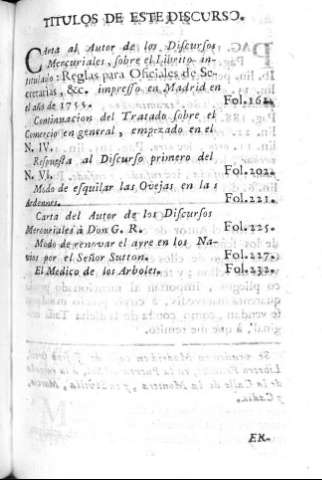 TITULOS DE ESTE DISCURSO.
Carta al Autor de los Discursos
Mercuriales, sobre el Librito in-
titulado: Reglas para Oficiales de Se-
cretarias, &c. impresso en Madrid en
el año de 1755. Fol.161.
Continuacion del Tratado sobre el
Comercio en general, empezado en el
N. IV.
Respuesta al Discurso primero del
N. VI. Fol.202.
Modo de esquilar las Ovejas en las
Ardennes. Fol.221.
Carta del Autor de los Discursos
Mercuriales à Don G. R. Fol.225.
Modo de renovar el ayre en los Na-
vios por el Señor Sutton. Fol.227.
El Medico de los Arboles. Fol.232.
ER-